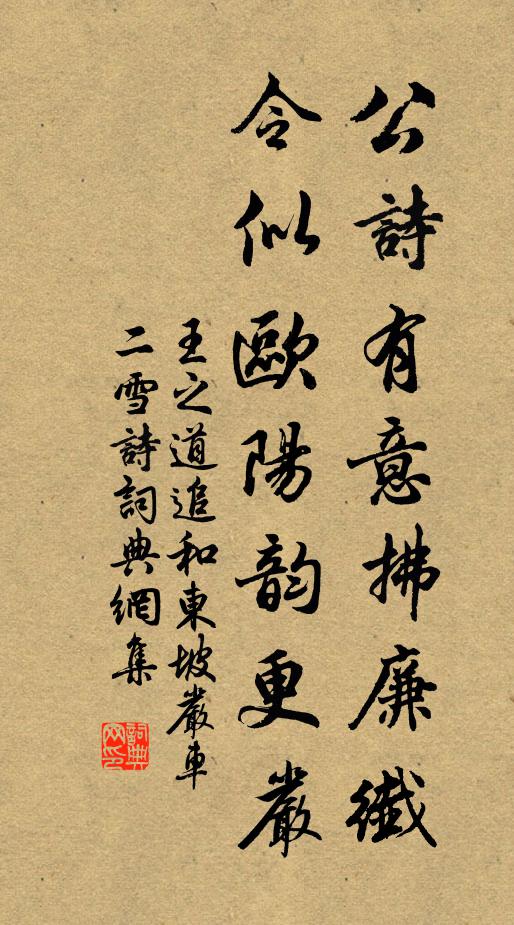 公詩有意拂廉纖
令似歐陽韵更嚴
王之道追和東坡嚴車
二雪詩詞典網集
詞典網印